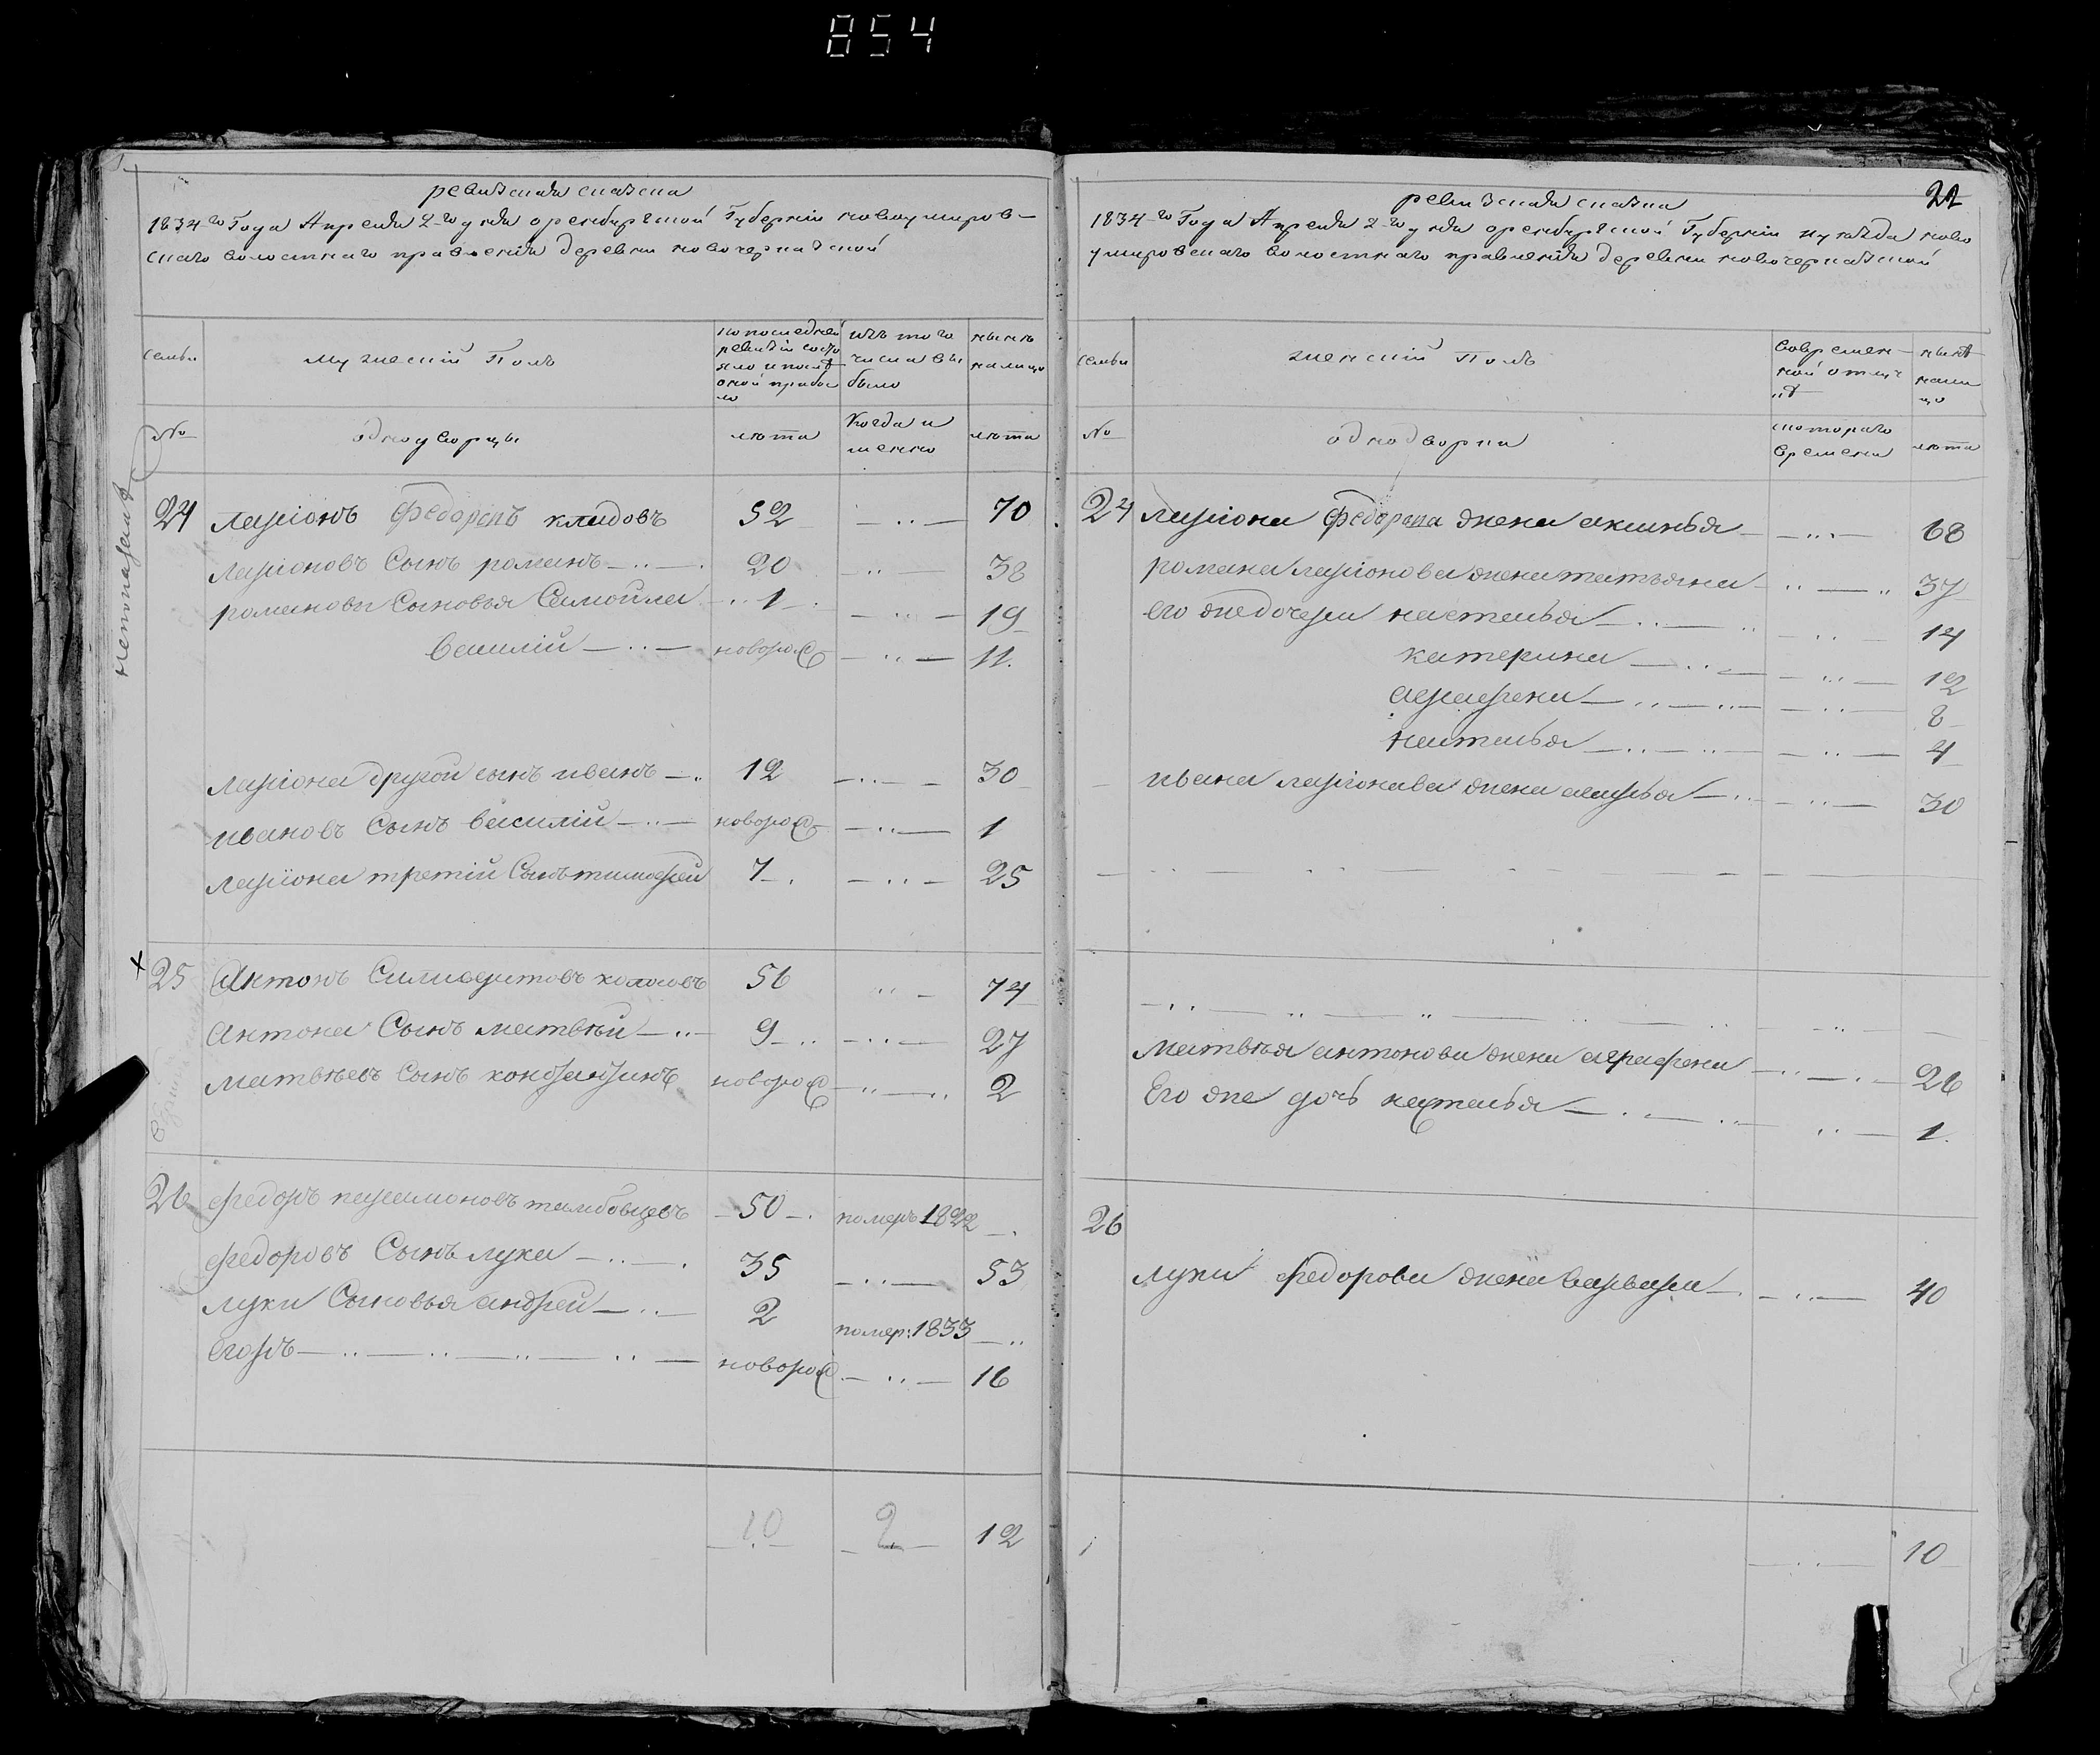 854
ревизская сказка
1834-го Года Апреля 2-го дня оренбургской Губернии новоумиров-
скаго волостнаго правления деревни новочеркаской
семьи
мужеский Полъ
по последней ревизии состояло и после оной прибыло
изъ того числа выбыло
ныне на лицо
№
однодворцы
лета
Когда именно
лета
непоказанъ
24 лариона Федоровъ клидовъ 52 70
ларионовъ Сынъ романъ 20 38
романовы Сыновья Самойла 1 19
василий новорож 11.
лариона другой сынъ иванъ 12 30
ивановъ Сынъ василий новорож 1
лариона третий Сынъ тимофей 7 25
х
25 Антонъ Силивертовъ 56 74
Антона Сынъ матвей 9 27
матвеевъ Сынъ новорож 2
26 федоръ парамоновъ тамбовцевъ 50 померъ 1822
федоровъ Сынъ лука 35 53
луки Сыновья андрей 2 помер: 1833
егоръ новорож 16
10 2 12
22
ревизская сказка
1834-го Года Апреля 2-го дня оренбургской Губернии уезда ново
умировскаго волостнаго правления деревни новочеркаской
семьи
женский полъ
во временной отлучке
ныне на лицо
№
однодворки
с котораго времени
лета
24 лариона Федорова жена аксинья 68
романа ларионова жена татьяна 37
его же дочери настасья 14
катерина 12
аграфена 8
настасья 4
ивана ларионава жена марья 30
матвея антонова жена аграфена 26
Его же дочь настасья 1.
26
луки федорова жена варвара 40
10